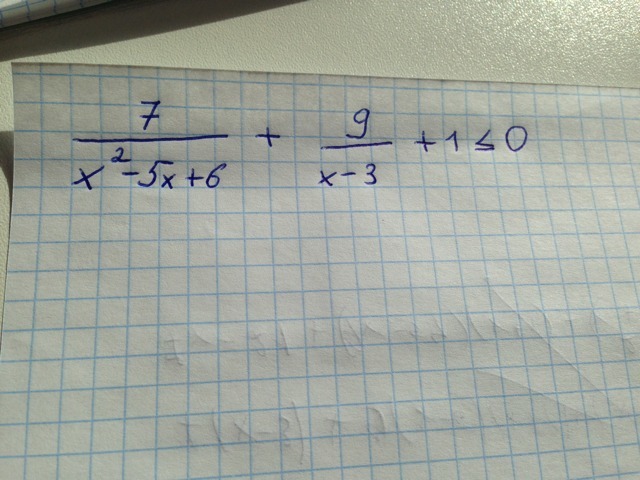 7/(x²-5x+6) + 9/(x-3) + 1 ≤ 0